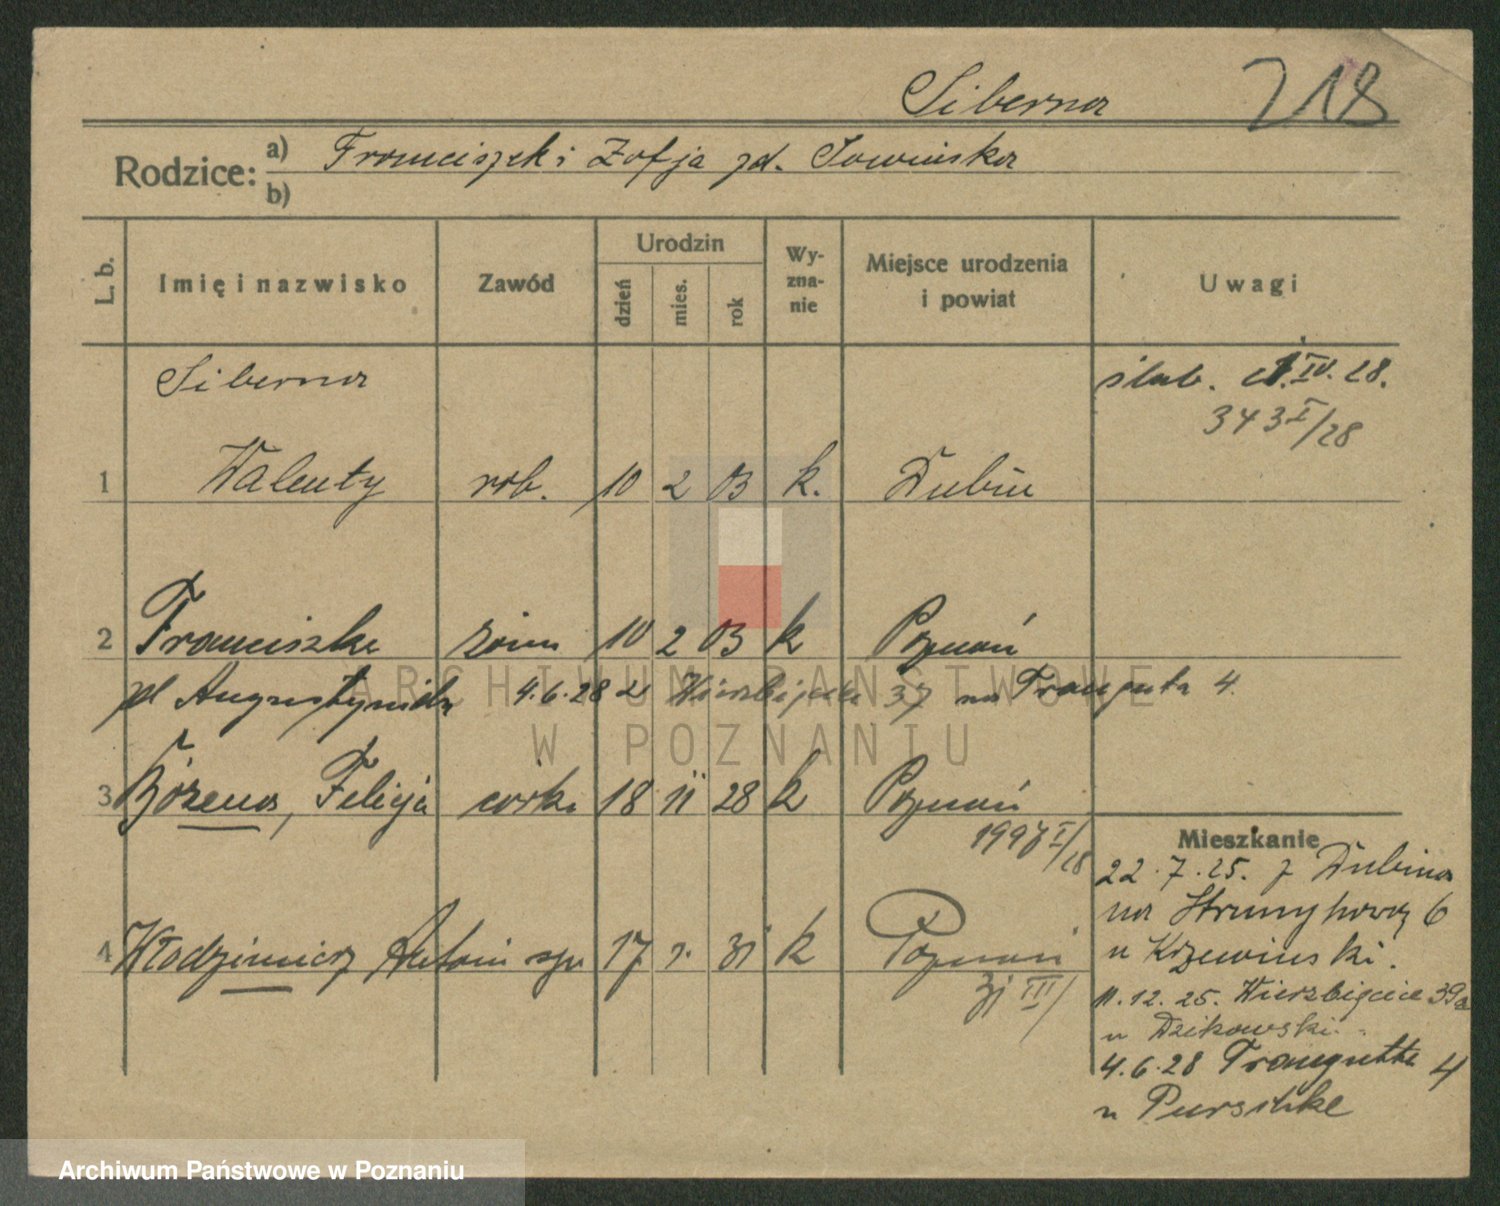 Siberna 218
Rodzice: a) Franciszek i Zofja zd. Sowińska
b)
L. b. Imię i nazwisko Zawód Urodzin dzień mies. rok Wyznanie Miejsce urodzenia i powiat Uwagi
Siberna ślub. IV. 28.
343 I/28
1 Walenty rob. 10 2 03 k. Dubin
2 Franciszka żona 10 2 03 k Poznań
zd Augustyniak 4.6.28 z Wierzbięcice 37 na Traugutta 4.
3 Bożena, Felicja córka 18 11 28 k Poznań
1997 I/28
Mieszkanie
22.7.25. z Dubina
na Strumykowa 6
u Krzewiński.
4 Włodzimierz Antoni syn 17 31 k Poznań
31 III/
11.12.25. Wierzbięcice 39a
u Dzikowski.
4.6.28 Traugutta 4
u
ARCHIWUM PAŃSTWOWE
W POZNANIU
Archiwum Państwowe w Poznaniu